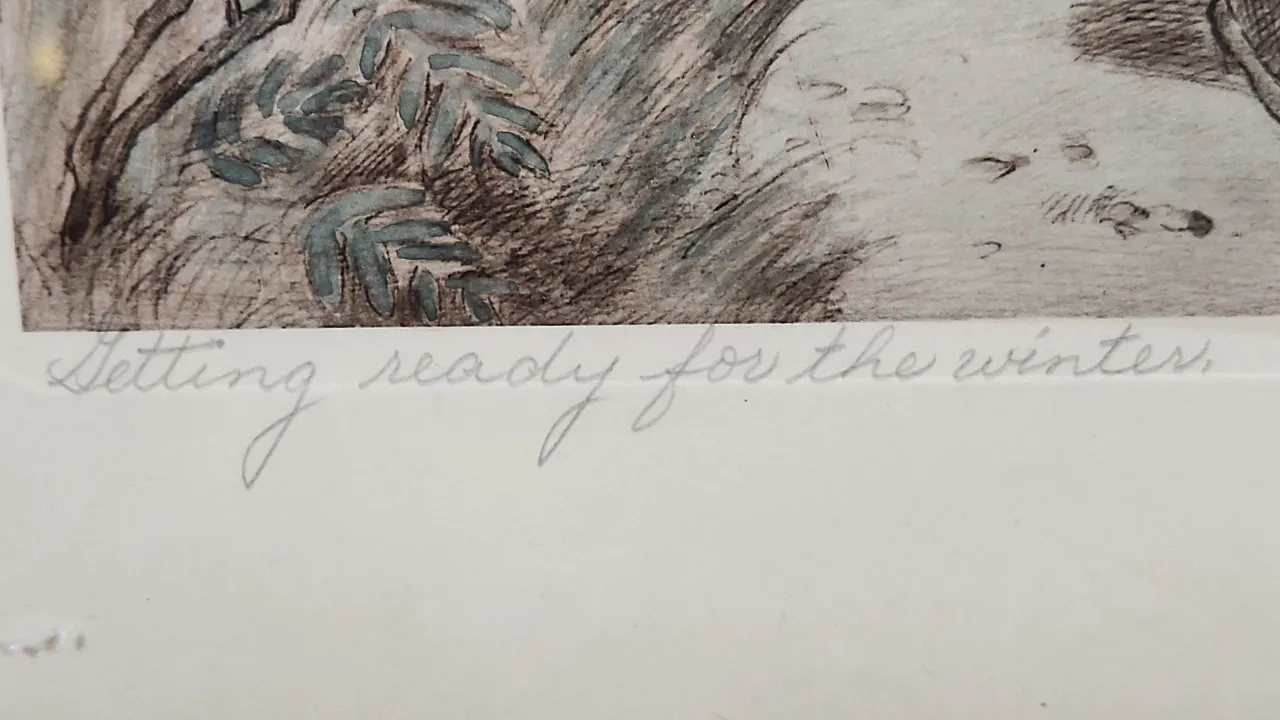 Getting ready for the winter.